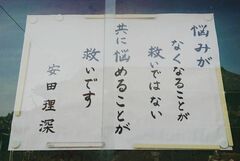 悩みが
なくなることが
救いではない
共に悩めることが
救いです
安田理深